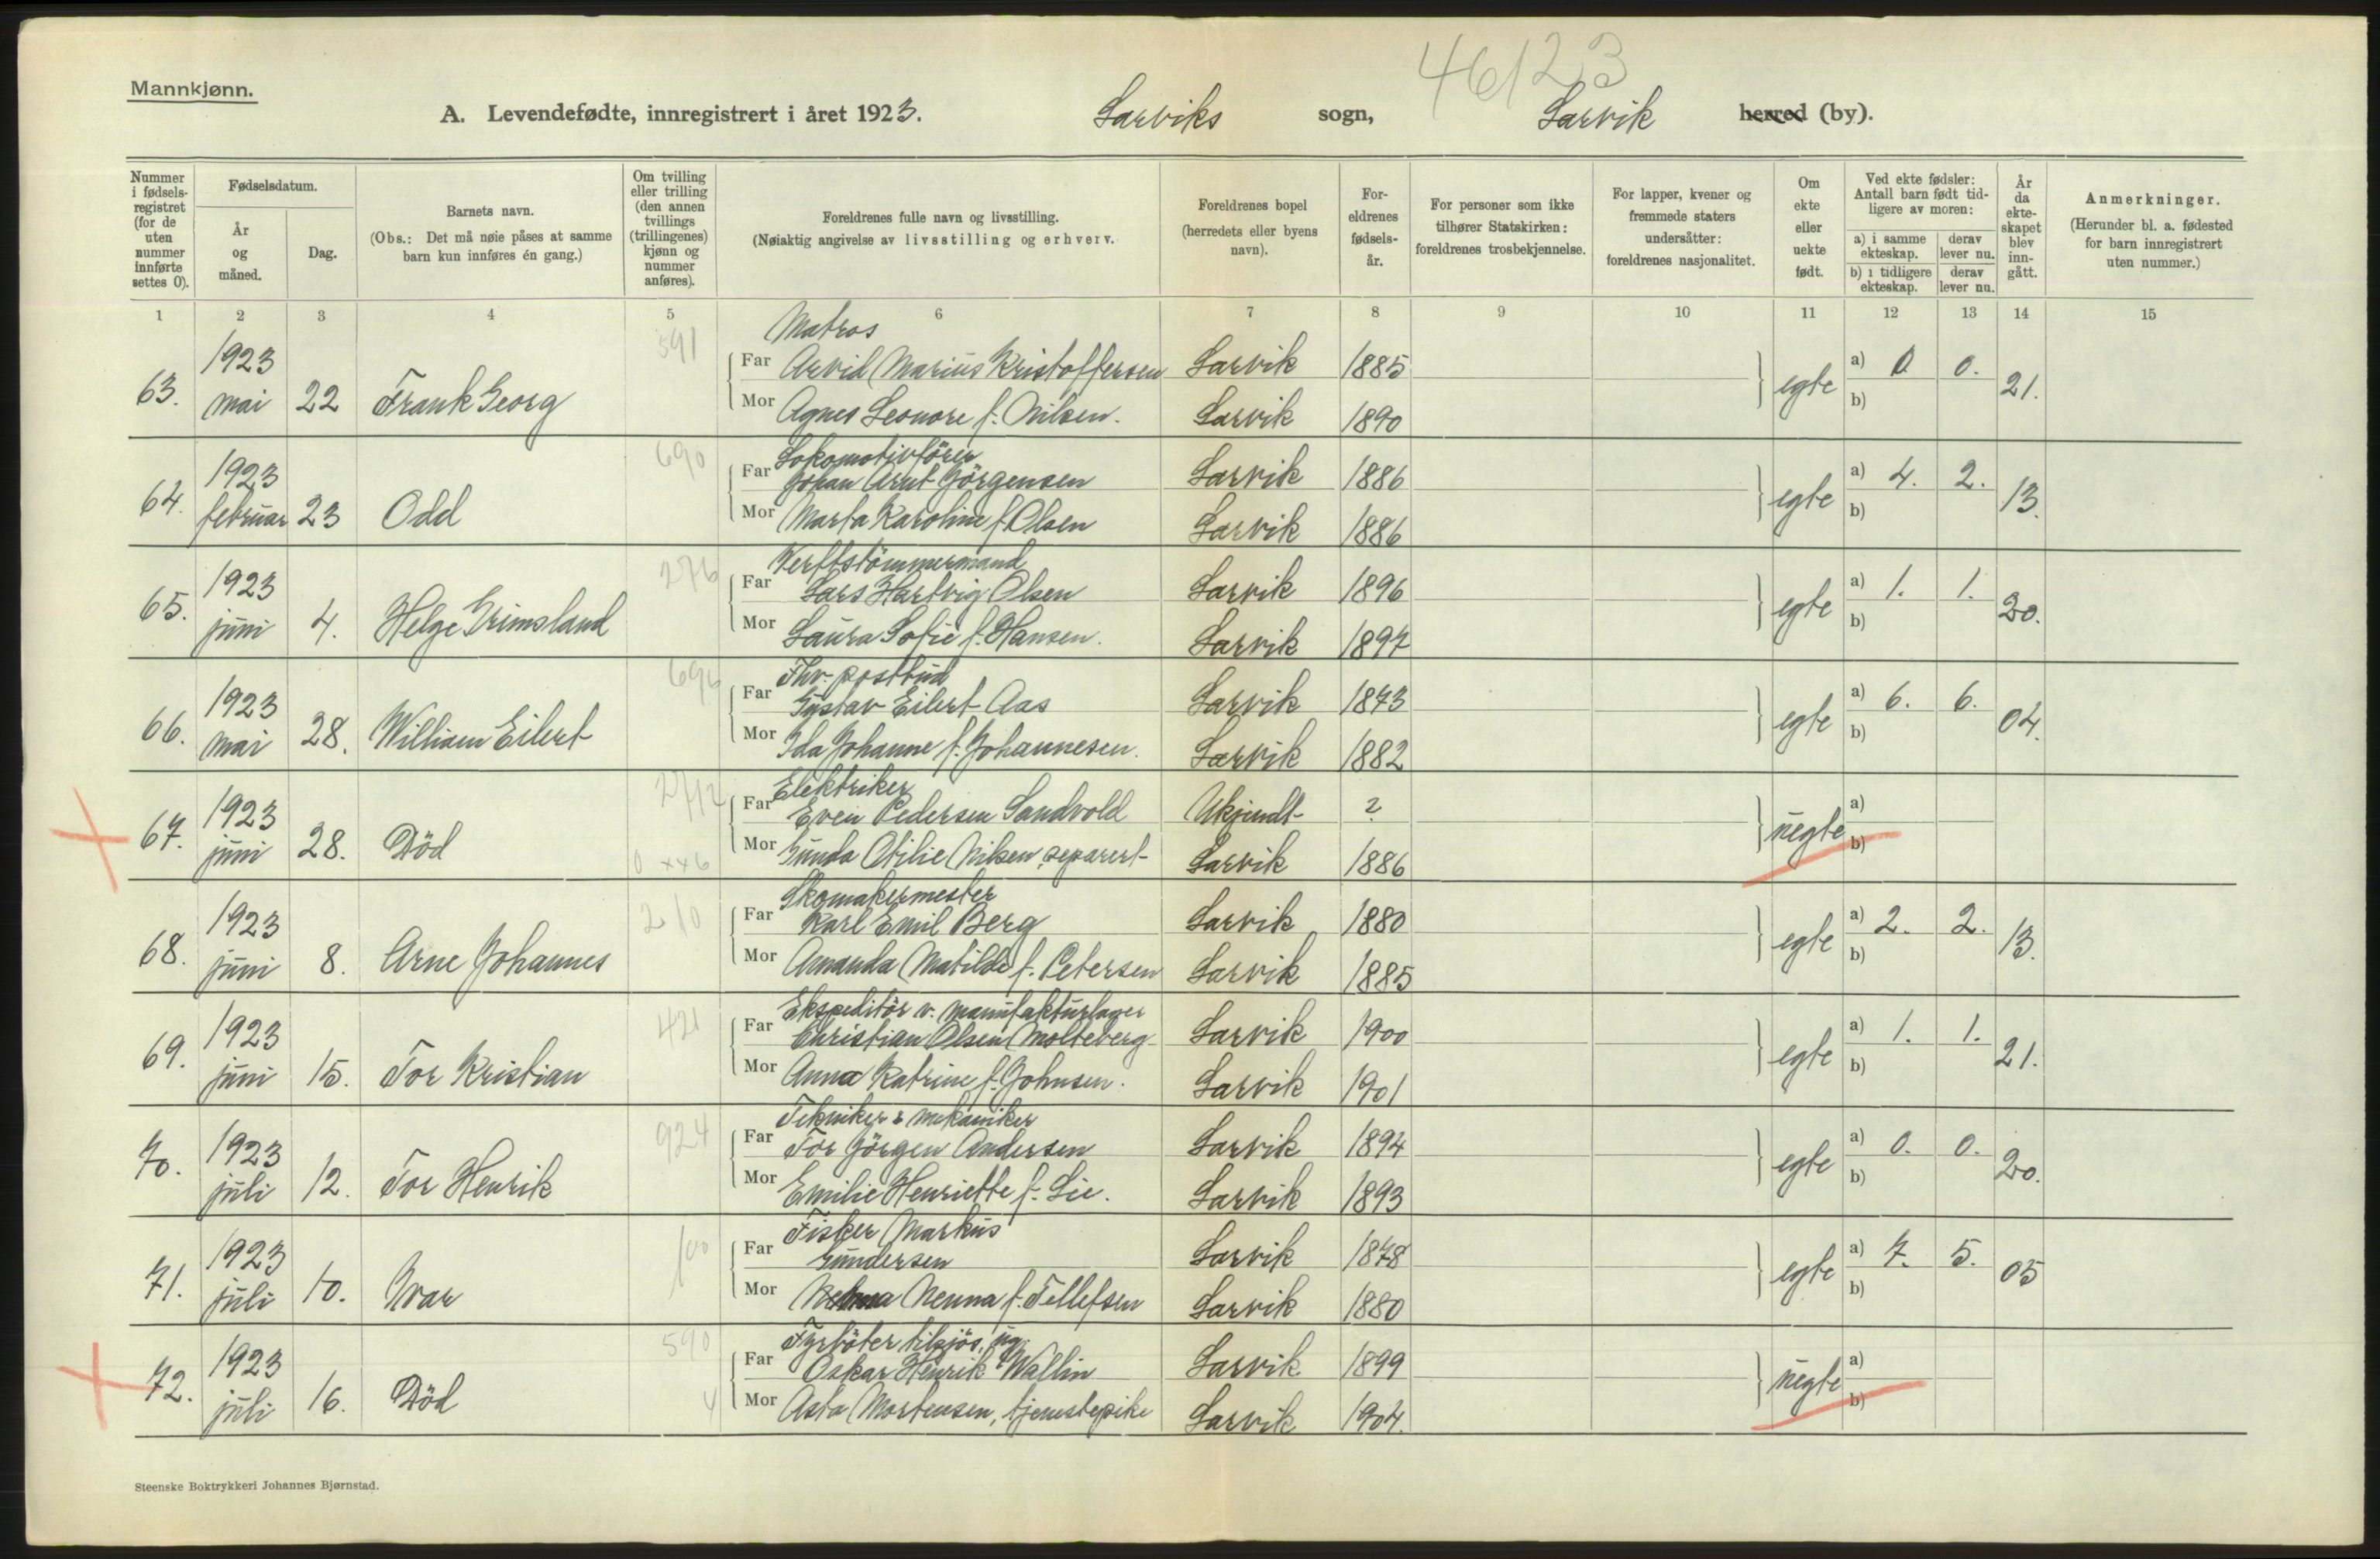 46123
Mannkjønn.
A. Levendefødte, innregistrert i året 1923. Larviks sogn, Larvik herred (by).
Nummer i fødsels-registret (for de uten nummer innførte settes 0).
Fødselsdatum.
År og måned.
Dag.
Barnets navn.
(Obs.: Det må nøie påses at samme barn kun innføres én gang.)
Om tvilling eller trilling (den annen tvillings (trillingenes) kjønn og nummer anføres).
Foreldrenes fulle navn og livsstilling.
(Nøiaktig angivelse av livsstilling og erhverv.
Foreldrenes bopel (herredets eller byens navn).
For-eldrenes fødsels-år.
For personer som ikke tilhører Statskirken: foreldrenes trosbekjennelse.
For lapper, kvener og fremmede staters undersåtter: foreldrenes nasjonalitet.
Om ekte eller uekte født.
Ved ekte fødsler: Antall barn født tid-ligere av moren:
a) i samme ekteskap. derav lever nu.
b) i tidligere ekteskap. derav lever nu.
År da ekte-skapet blev inn-gått.
Anmerkninger.
(Herunder bl. a. fødested for barn innregistrert uten nummer.)
1 2 3 4 5 6 7 8 9 10 11 12 13 14 15
591 Matros
63. 1923 mai 22 Frank Georg Far Arvid Marius Kristoffersen Larvik 1885 egte a) 0 0. 21.
Mor Agnes Leonore f. Nilsen. Larvik 1890 b)
690 Lokomotivfører
64. 1923 februar 23 Odd Far Johan Arnt Jörgensen Larvik 1886 egte a) 4. 2. 13.
Mor Marta Karoline f. Olsen Larvik 1886 b)
276 Verftstömmermand
65. 1923 juni 4. Helge Grimsland Far Lars Hartvig Olsen Larvik 1896 egte a) 1. 1. 20.
Mor Laura Sofie f. Hansen. Larvik 1897 b)
Fhv. postbud
66. 1923 mai 28. William Eilert Far Gustav Eilert Aas Larvik 1873 egte a) 6. 6. 04.
Mor Ida Johanne f. Johannesen. Larvik 1882 b)
Elektriker
67. 1923 juni 28. Död Far Even Pedersen Sandvold Ukjendt ? uegte a)
0 xx6 Mor Gunda Otilie Nilsen, separert Larvik 1886 b)
210 Skomakermester
68. 1923 juni 8. Arne Johannes Far Karl Emil Berg Larvik 1880 egte a) 2. 2. 13.
Mor Amanda Matilde f. Petersen Larvik 1885 b)
421 Ekspeditör v. manufakturlager
69. 1923 juni 15. Tor Kristian Far Christian Olsen Molteberg Larvik 1900 egte a) 1. 1. 21.
Mor Anna Katrine f. Johnsen. Larvik 1901 b)
924 Tekniker & mekaniker
70. 1923 juli 12. Tor Henrik Far Tor Jörgen Andersen Larvik 1894 egte a) 0. 0. 20.
Mor Emilie Henriette f. Lie. Larvik 1893 b)
100 Fisker Markus
71. 1923 juli 10. Ivar Far Gundersen Larvik 1878 egte a) 7. 5. 05
Mor Nenna f. Tellefsen Larvik 1880 b)
590 Fyrböter tilsjös, ug.
72. 1923 juli 16. Död Far Oskar Henrik Wallin Larvik 1899 uegte a)
4 Mor Asta Mortensen, tjenestepike Larvik 1904. b)
Steenske Boktrykkeri Johannes Bjørnstad.